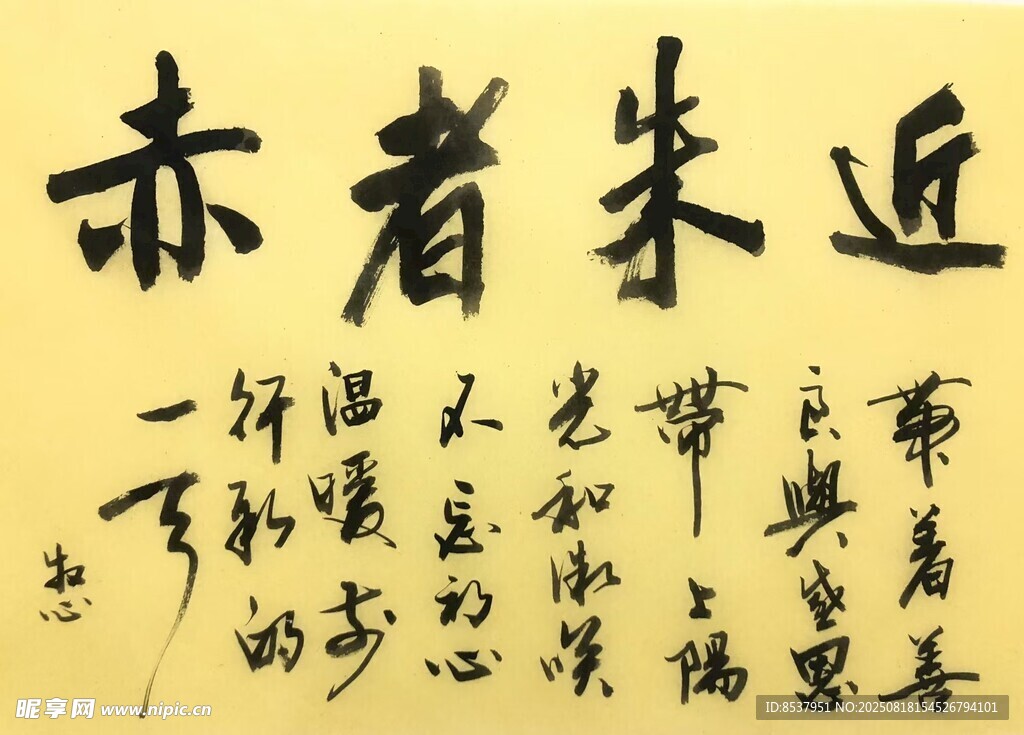 近朱者赤
帶着善
良與感恩
帶上陽
光和微笑
不忘初心
温暖前
行新的
一天
昵享网 www.nipic.cn
ID:8537951 NO:20250818154526794101